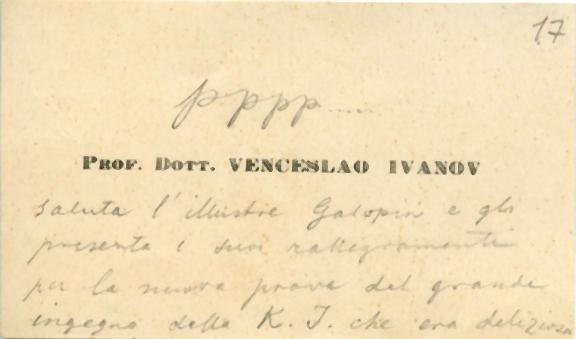 17
pppp.....
PROF. DOTT. VENCESLAO IVANOV
saluta l'illustre Galopin e gli
presenta i suoi rallegramenti
per la nuova prova del grande
ingegno della K. J. che era deliziosa